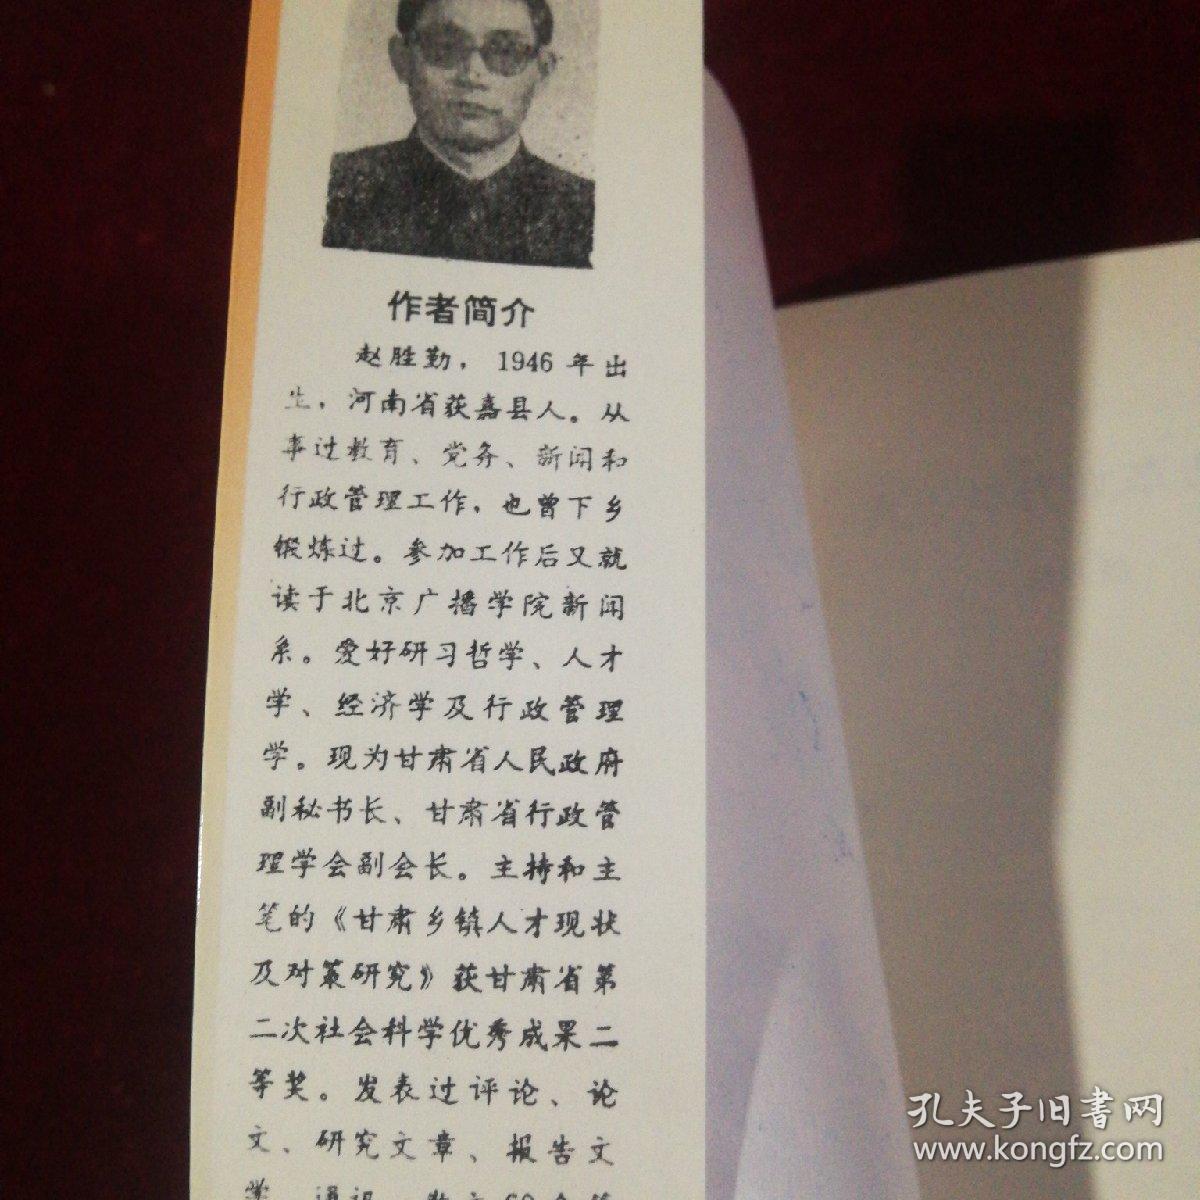 作者简介
赵胜勤，1946年出
生，河南省获嘉县人。从
事过教育、党务、新闻和
行政管理工作，也曾下乡
锻炼过。参加工作后又就
读于北京广播学院新闻
系。爱好研习哲学、人才
学、经济学及行政管理
学。现为甘肃省人民政府
副秘书长、甘肃省行政管
理学会副会长。主持和主
笔的《甘肃乡镇人才现状
及对策研究》获甘肃省第
二次社会科学优秀成果二
等奖。发表过评论、论
文、研究文章、报告文
学、通讯
孔夫子旧書网
www.kongfz.com